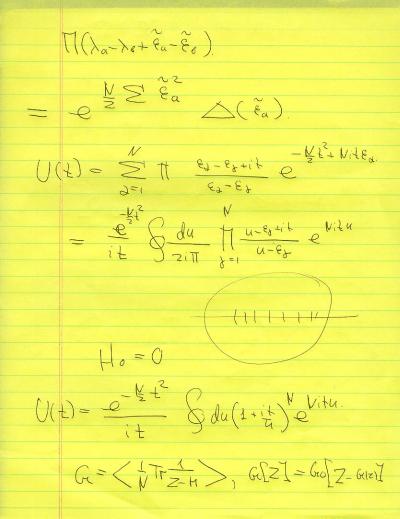 Π(λₐ-λ₆+ε̃ₐ-ε̃₆).
= e^{N/2 Σ ε̃ₐ²} Δ(ε̃ₐ).
U(t) = Σ_{α=1}^{N} Π (ε_α-ε_γ+it)/(ε_α-ε_γ) e^{-N/2 t²+Nitε_α}
= e^{-N/2 t²}/it ∮ du/2iπ Π_{γ=1}^{N} (u-ε_γ+it)/(u-ε_γ) e^{Nitu}
H₀ = 0
U(t) = e^{-N/2 t²}/it ∮ du (1+it/u)^N e^{Nitu}.
G = <1/N Tr 1/(Z-H)>, G[Z] = G₀[Z-G(z)]